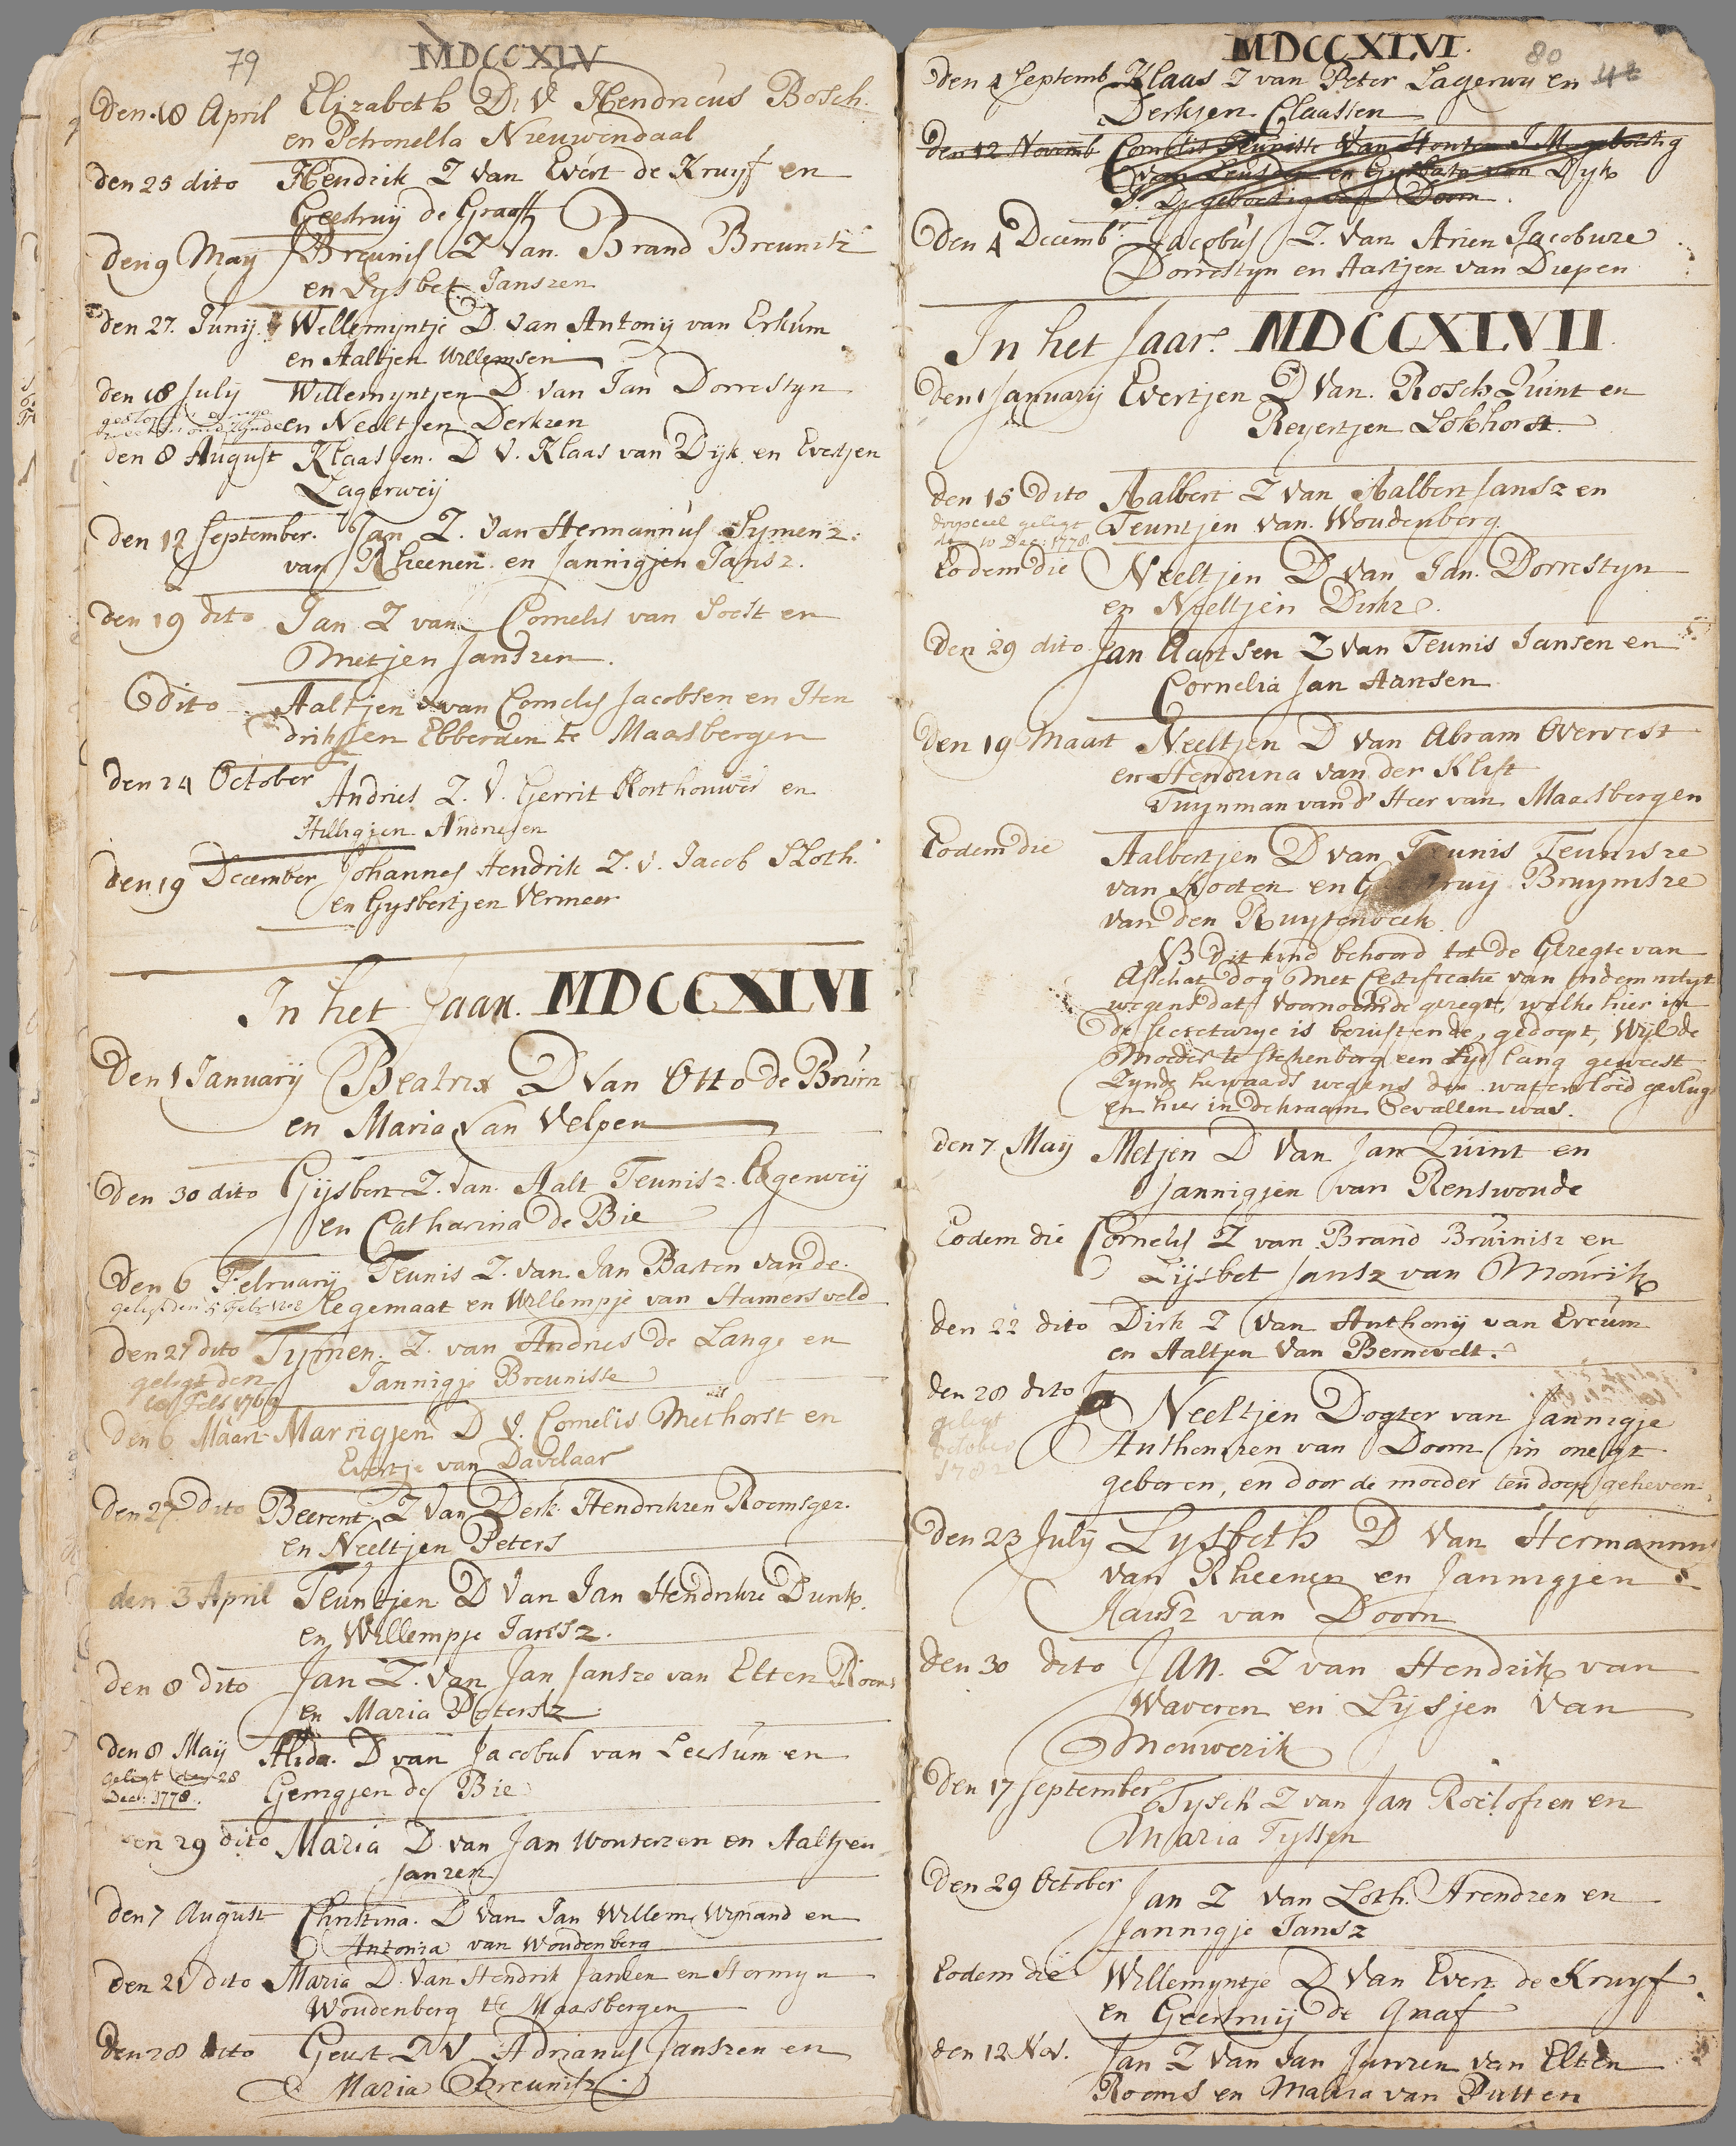 79
MDCCXLV
Den 18 April Elizabeth D. V Hendricus Bosch.
en Petronella Nieuwendaal
den 25 dito Hendrik Z van Evert de Kruyf en
Geertruij de Graaff
den 9 May Breunis Z van Brand Breunisz
en Lysbet Janszen
den 27. Junij. Willemyntje D. van Antonij van Erkum
en Aaltjen Willemsen
den 18 July Willemyntjen D. van Jan Dorrestyn
en Neeltjen Derkzen
den 8 August Klaasjen. D V. Klaas van Dijk en Evertjen
Lagerweij
den 12 September. Jan Z. van Hermannus Symenz.
van Rheenen en Jannigjen Jansz.
den 19 dito Jan Z van Cornelis van Soest en
Metjen Janszen.
dito Aaltjen van Cornelis Jacobsen en Hen
driksen Ebberden te Maarsbergen
den 24 October Andries Z. V. Gerrit en
Hilligjen Andriesen
den 19 December Johannes Hendrik Z. v. Jacob Sloth.
en Gysbertjen Vermeer
In het Jaar. MDCCXLVI
Den 1 January Beatrix D van Otto de Bruin
en Maria van Velpen
Den 30 dito Gijsbert Z. van Aalt Teunisz. Lagerweij
en Catharina de Bie
Den 6 February Teunis Z. van Jan Basten van de
Hegemaat en Willempje van Hamersveld
den 27 dito Tymen. Z. van Andries de Lange en
geligt den Jannigje Breunisse
den 6 Maart Marrigjen D V. Cornelis Methorst en
Evertje van Davelaar
Den 27 Dito Beerent Z van Derk Hendrikzen Roomsgez.
en Neeltjen Peters
den 3 April Teuntjen D van Jan Hendrikze Dunk.
en Willempje Jansz.
den 8 dito Jan Z. van Jan Jansze van Elten Rooms
en Maria Petersz
den 8 May Alida. D van Jacobus van Leersum en
geligt den 28
Dec: 1778. Gerrigjen de Bie
den 29 dito Maria D van Jan Wouterzen en Aaltjen
Janzen
den 7 August Christina. D van Jan Willem Wynand en
Antonia van Woudenberg
den 21 dito Maria D. van Hendrik Janzen en Hermyn
Woudenberg te Maarsbergen
den 28 dito Geurt Z V Adrianus Janszen en
Maria Breunisz
MDCCXLVI.
80
Den 4 Septemb Klaas Z van Peter Lagerwy en
Derkjen Claassen
den 12 Novemb Cornelis Teunisse van Houten J M geboortig
van Leusden en Gysbertje van Dyk
J. D. geboortig van Doorn.
Den 4 Decemb Jacobus Z. van Arien Jacobuze
Dorrestyn en Aartjen van Diepen
In het Jaar MDCCXLVII
den 1 January Evertjen D van. Rosch Quint en
Reyertjen Lokhorst
den 15 Dito Aalbert Z van Aalbert Jansz en
doopceel geligt Teuntjen van Woudenberg
den 10 Dec: 1778.
Eodem die Neeltjen D van Jan. Dorrestyn
en Neeltjen Dirkz.
Den 29 dito Jan Aartsen Z van Teunis Jansen en
Cornelia Jan Aartsen
den 19 Maart Neeltjen D van Abram Overvest
en Hendrina van der Klift
Tuynman van d' Heer van Maarsbergen
Eodem die Aalbertjen D van Teunis Teunisze
van Kooten en Bruynisze
van den Ruytenbeek.
NB Dit kind behoord tot de Geregte van
Asschat dog met Certificatie van Indemniteyt
wegens dat voornoemde geregt, welke hier in
de secretarye is berustende, gedoopt, Wijl de
Moeder te Stekenborg een tijd lang geweest
Zynde herwaards wegens den watervloed gevlugt
en hier in de kraam bevallen was.
den 7 May Metjen D van Jan Quint en
Jannigjen van Renswoude
Eodem die Cornelis Z van Brand Bruinisz en
Lijsbet Jansz van Mourik
den 22 dito Dirk Z van Anthonij van Ercum
en Aaltjen van Bernevelt.
den 28 dito Neeltjen Dogter van Jannigje
geligt Anthonizen van Doorn in onegt
October
1782 geboren, en door de moeder ten doop geheven.
Den 23 July Lysbeth D van Hermannus
van Rheenen en Jannigjen
Jansz van Doorn
den 30 dito JAN. Z van Hendrik van
Waveren en Lijsjen van
Mouwerik
Den 17 September Tysch Z van Jan Roelofsen en
Maria Tyssen
Den 29 October Jan Z van Loth. Arendzen en
Jannigje Jansz
Eodem die Willemyntje D van Evert de Kruyf
en Geertruij de Graaf
den 12 Nov. Jan Z van Jan Janzen van Elten
Rooms en Maria van Putten